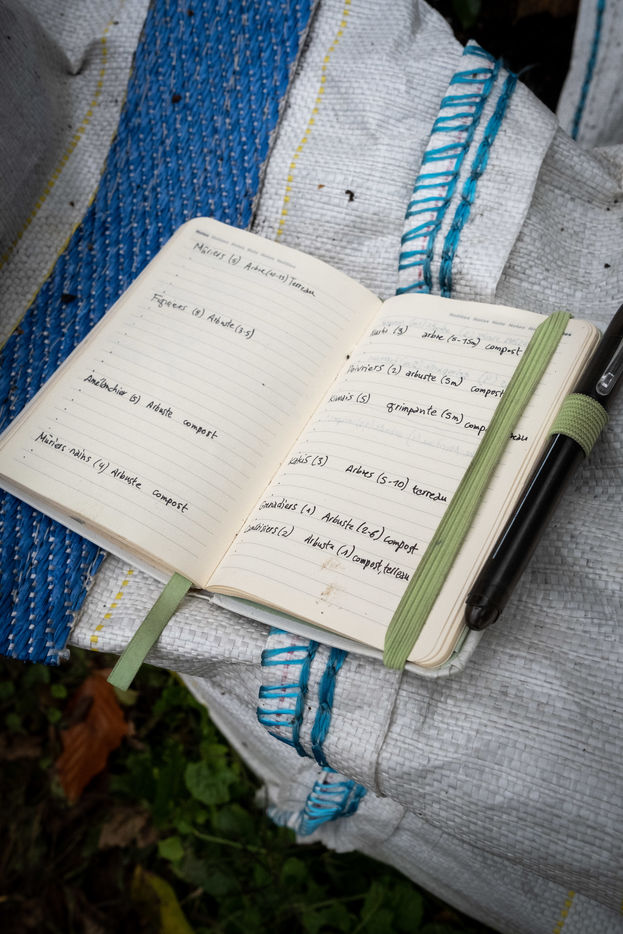 Mûriers (9) Arbre (10-15) Terreau
Figuiers (8) Arbuste (3-5)
Amélanchier (5) Arbuste compost
Mûriers nains (4) Arbuste compost
(3) arbre (5-15m) compost
Poivriers (2) arbuste (5m) compost
Kiwais (5) grimpante (5m)
Kakis (3) Arbres (5-10) terreau
Grenadiers (1) Arbuste (2-6) compost
(2) Arbuste (1) compost, terreau